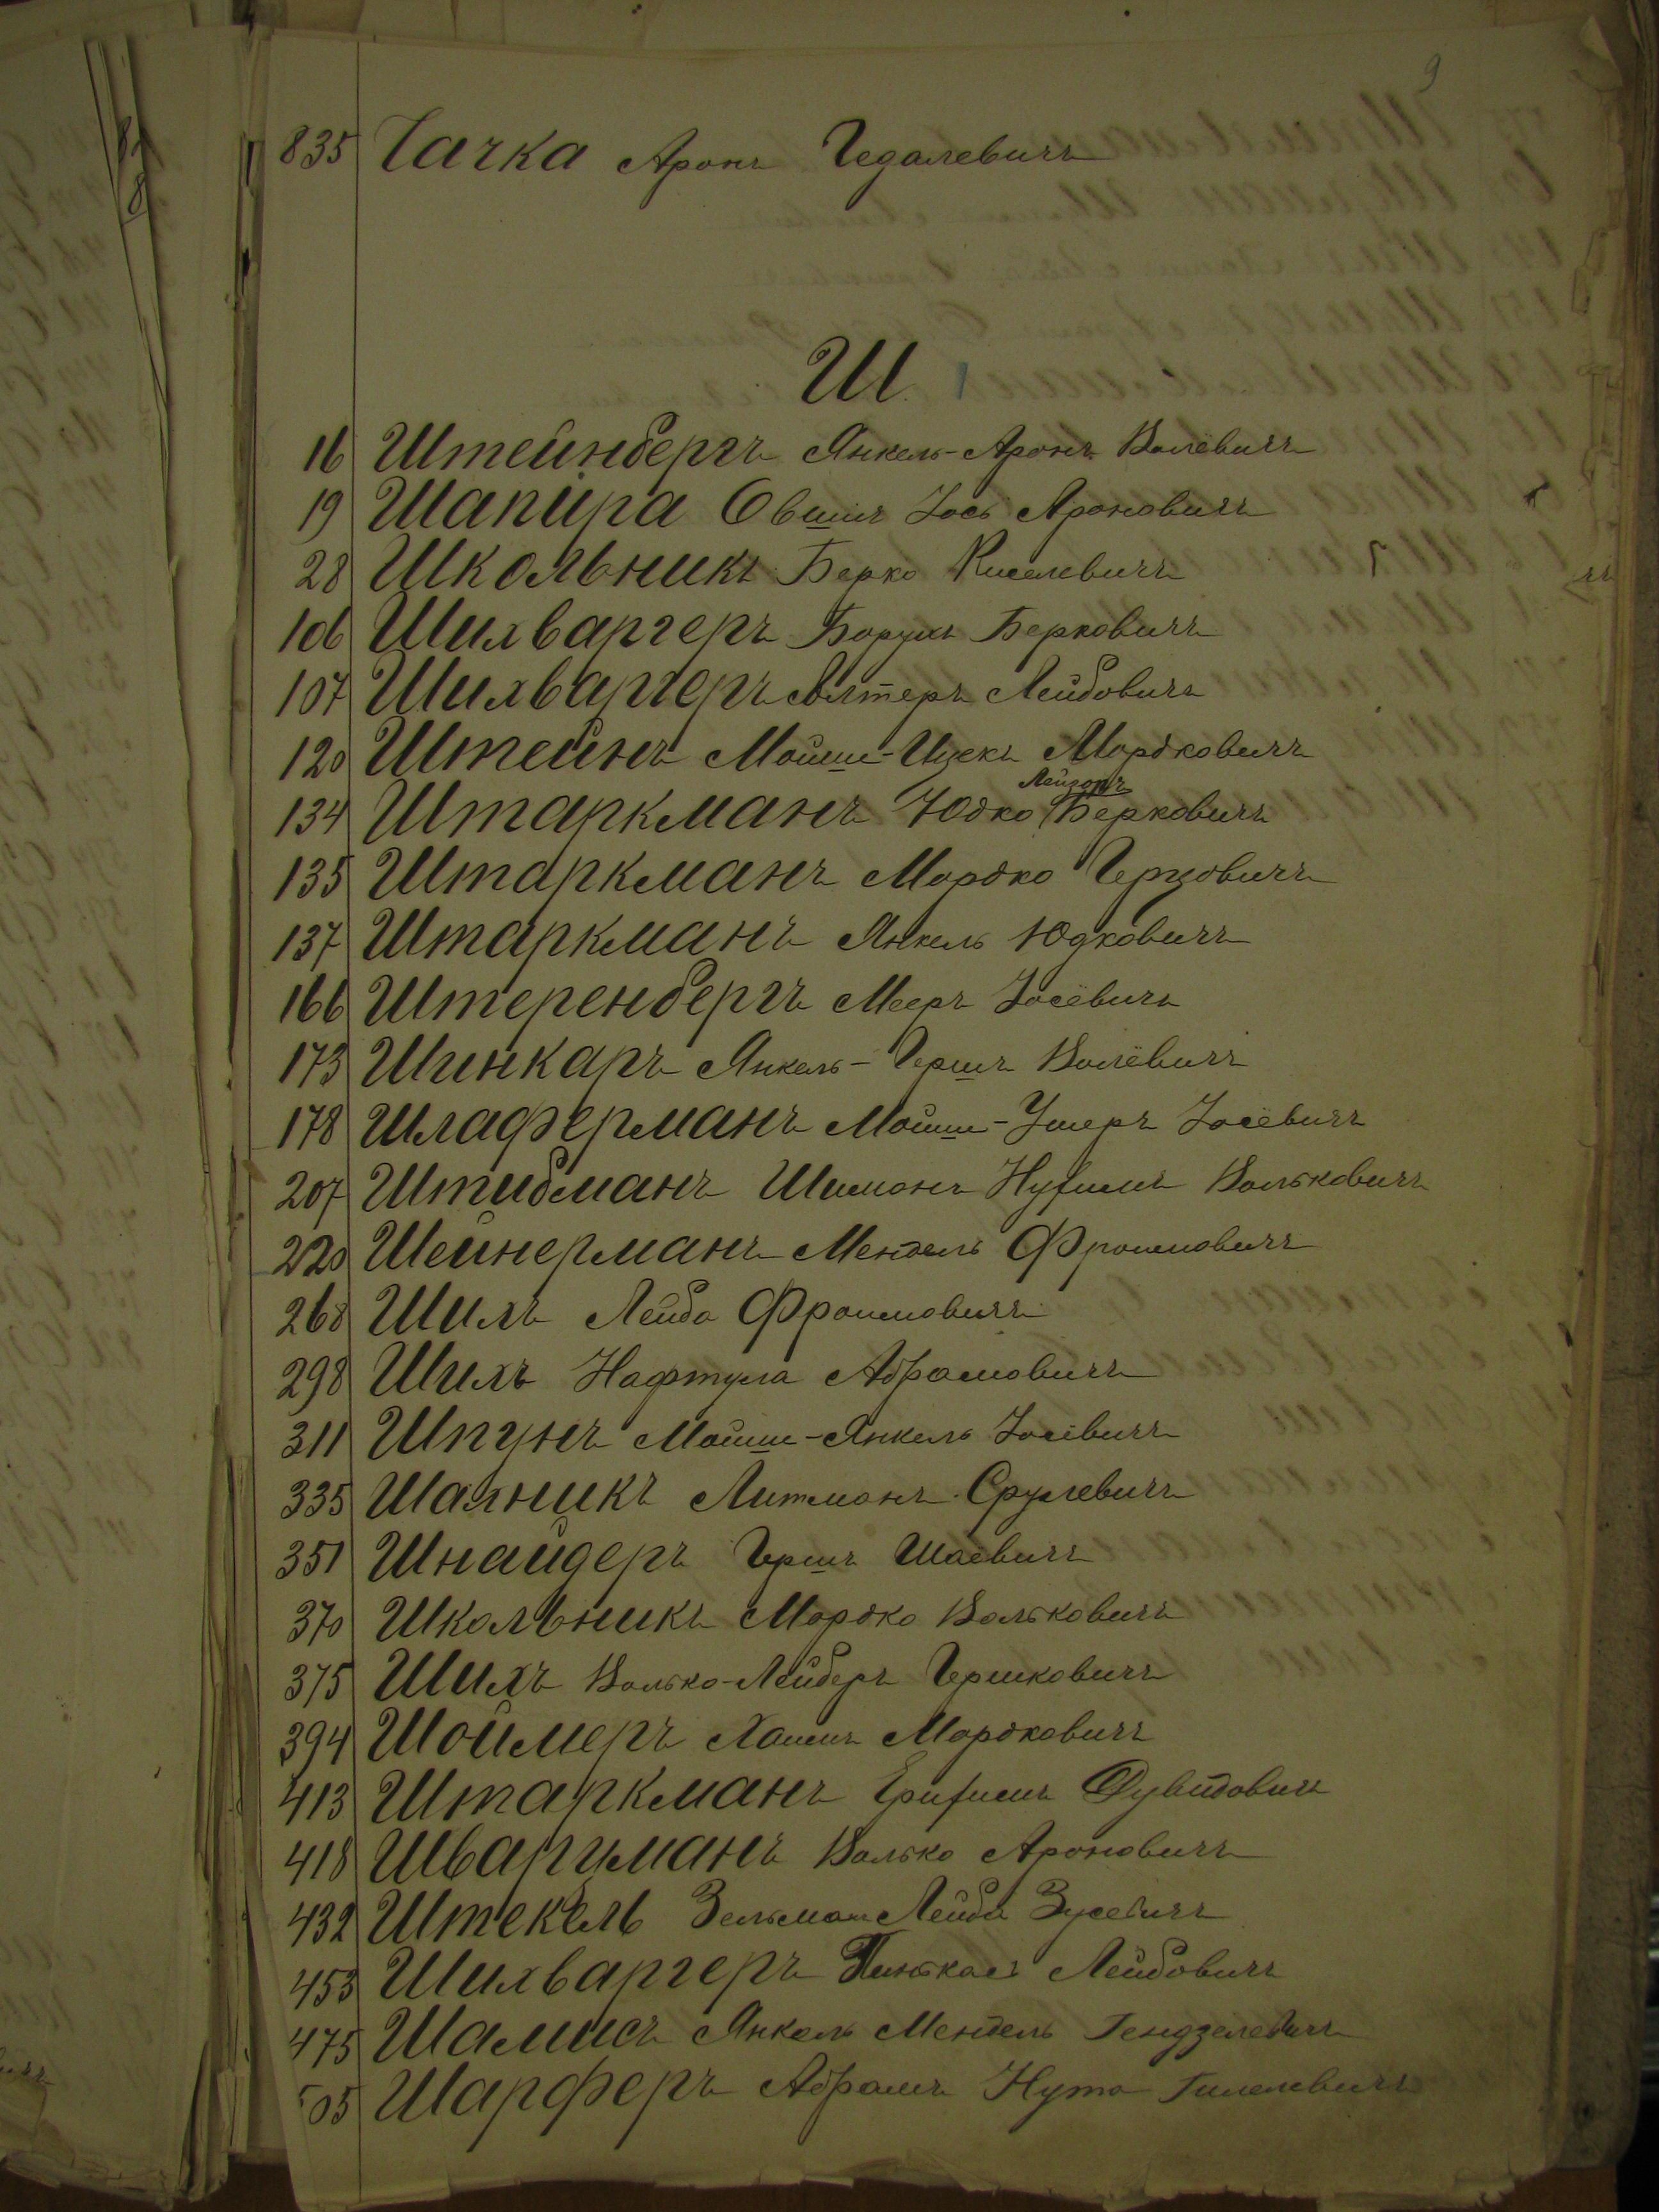 9
835 Чачка Аронъ Гедалевичъ
Ш.
16 Штейнбергъ Янкель-Аронъ Волёвичъ
19 Шапира Овшія Іось Ароновичъ
28 Школьникъ Берко Киселевичъ
106 Шихваргеръ Борухъ Берковичъ
107 Шихваргеръ Алтеръ Лейбовичъ
120 Штейнъ Мойше-Ицекъ Мордковичъ
Лейзоръ
134 Штаркманъ Юдко Берковичъ
135 Штаркманъ Мордко Герцовичъ
137 Штаркманъ Янкель Юдковичъ
166 Штеренбергъ Мееръ Іосёвичъ
173 Шинкаръ Янкель-Гершъ Волёвичъ
178 Шлаферманъ Мойше-Ушеръ Іосёвичъ
207 Штибманъ Шимонъ Нухимъ Вольковичъ
220 Шейнерманъ Мендель Фроимовичъ
268 Шиль Лейба Фроимовичъ
298 Шихъ Нафтула Абрамовичъ
311 Шпунъ Мойше-Янкель Іосёвичъ
335 Шапникъ Литманъ Срулевичъ
351 Шнайдеръ Гершъ Шаёвичъ
370 Школьникъ Мордко Вольковичъ
375 Шихъ Волько-Лейберъ Гершковичъ
394 Шоймеръ Хаимъ Мордковичъ
413 Штаркманъ Ерухимъ Дувидовичъ
418 Шварцманъ Волько Ароновичъ
432 Штекель Зельман Лейба Зусевичъ
453 Шихваргеръ Пинькасъ Лейбовичъ
475 Шамисъ Янкель Мендель Гендзелевичъ
505 Шарферъ Абрамъ Нута Гилелевичъ